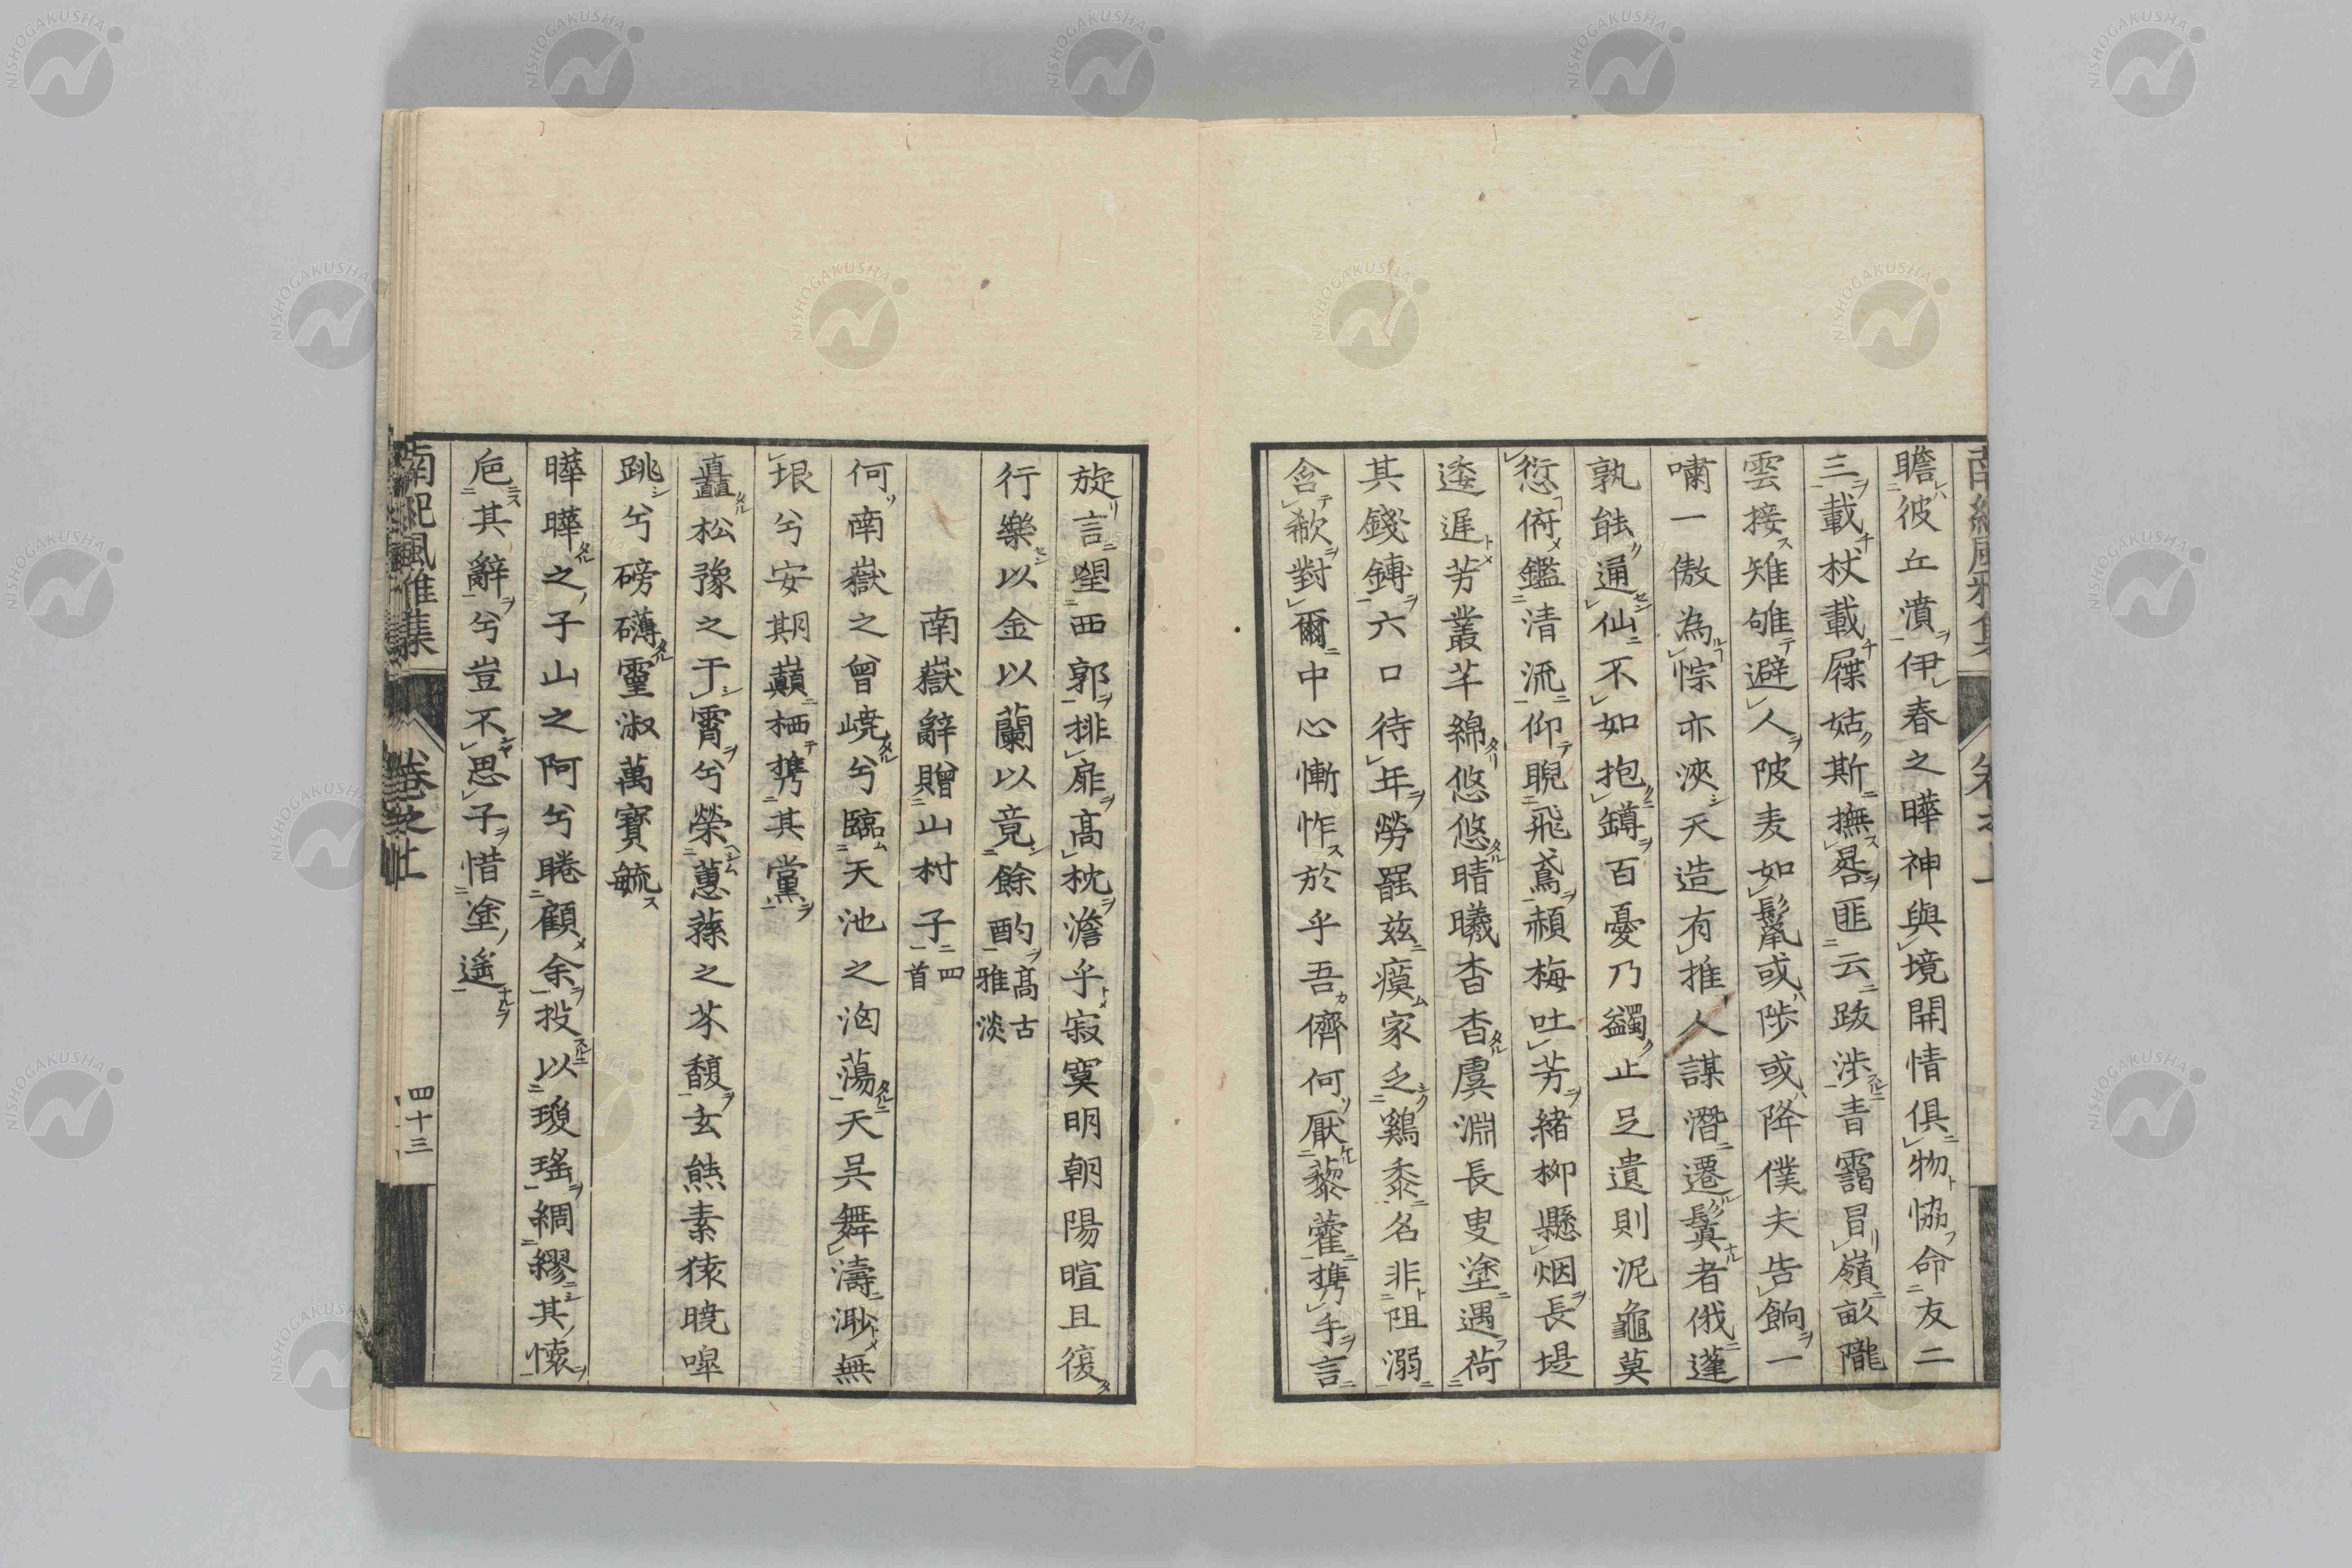 瞻彼丘濆伊春之曄神與境開情俱物協命友二
三載杖載屧姑斯撫晷匪云跋涉青靄冒嶺畝隴
雲接雉雊避人陂麦如鬣或陟或降僕夫告餉一
嘯一傲為悰亦浹天造有推人謀潛遷鬒者俄蓬
孰能通仙不如抱罇百憂乃蠲止足遺則泥龜莫
愆俯鑑清流仰睨飛鳶頳梅吐芳緒柳懸烟長堤
逶遲芳叢芊綿悠悠晴曦杳杳虞淵長叟塗遇荷
其錢鎛六口待年勞罷茲瘼家乏鷄黍名非阻溺
含欷對爾中心慚怍於乎吾儕何厭藜藿携手言
旋言望西郭排扉高枕澹乎寂寞明朝陽暄且復
行樂以金以蘭以竟餘酌 高古雅淡
南嶽辭贈山村子 四首
何南嶽之曾嶢兮臨天池之洶蕩天吳舞濤渺無
垠兮安期巔栖携其黨
矗松豫之于霄兮榮蕙蓀之芬馥玄熊素猿曉嘷
跳兮磅礴靈淑萬寶毓
曄曄之子山之阿兮睠顧余投以瓊瑤綢繆其懷
卮其辭兮豈不思子惜塗遥
南紀風雅集
卷之上
四十三
NISHOGAKUSHA